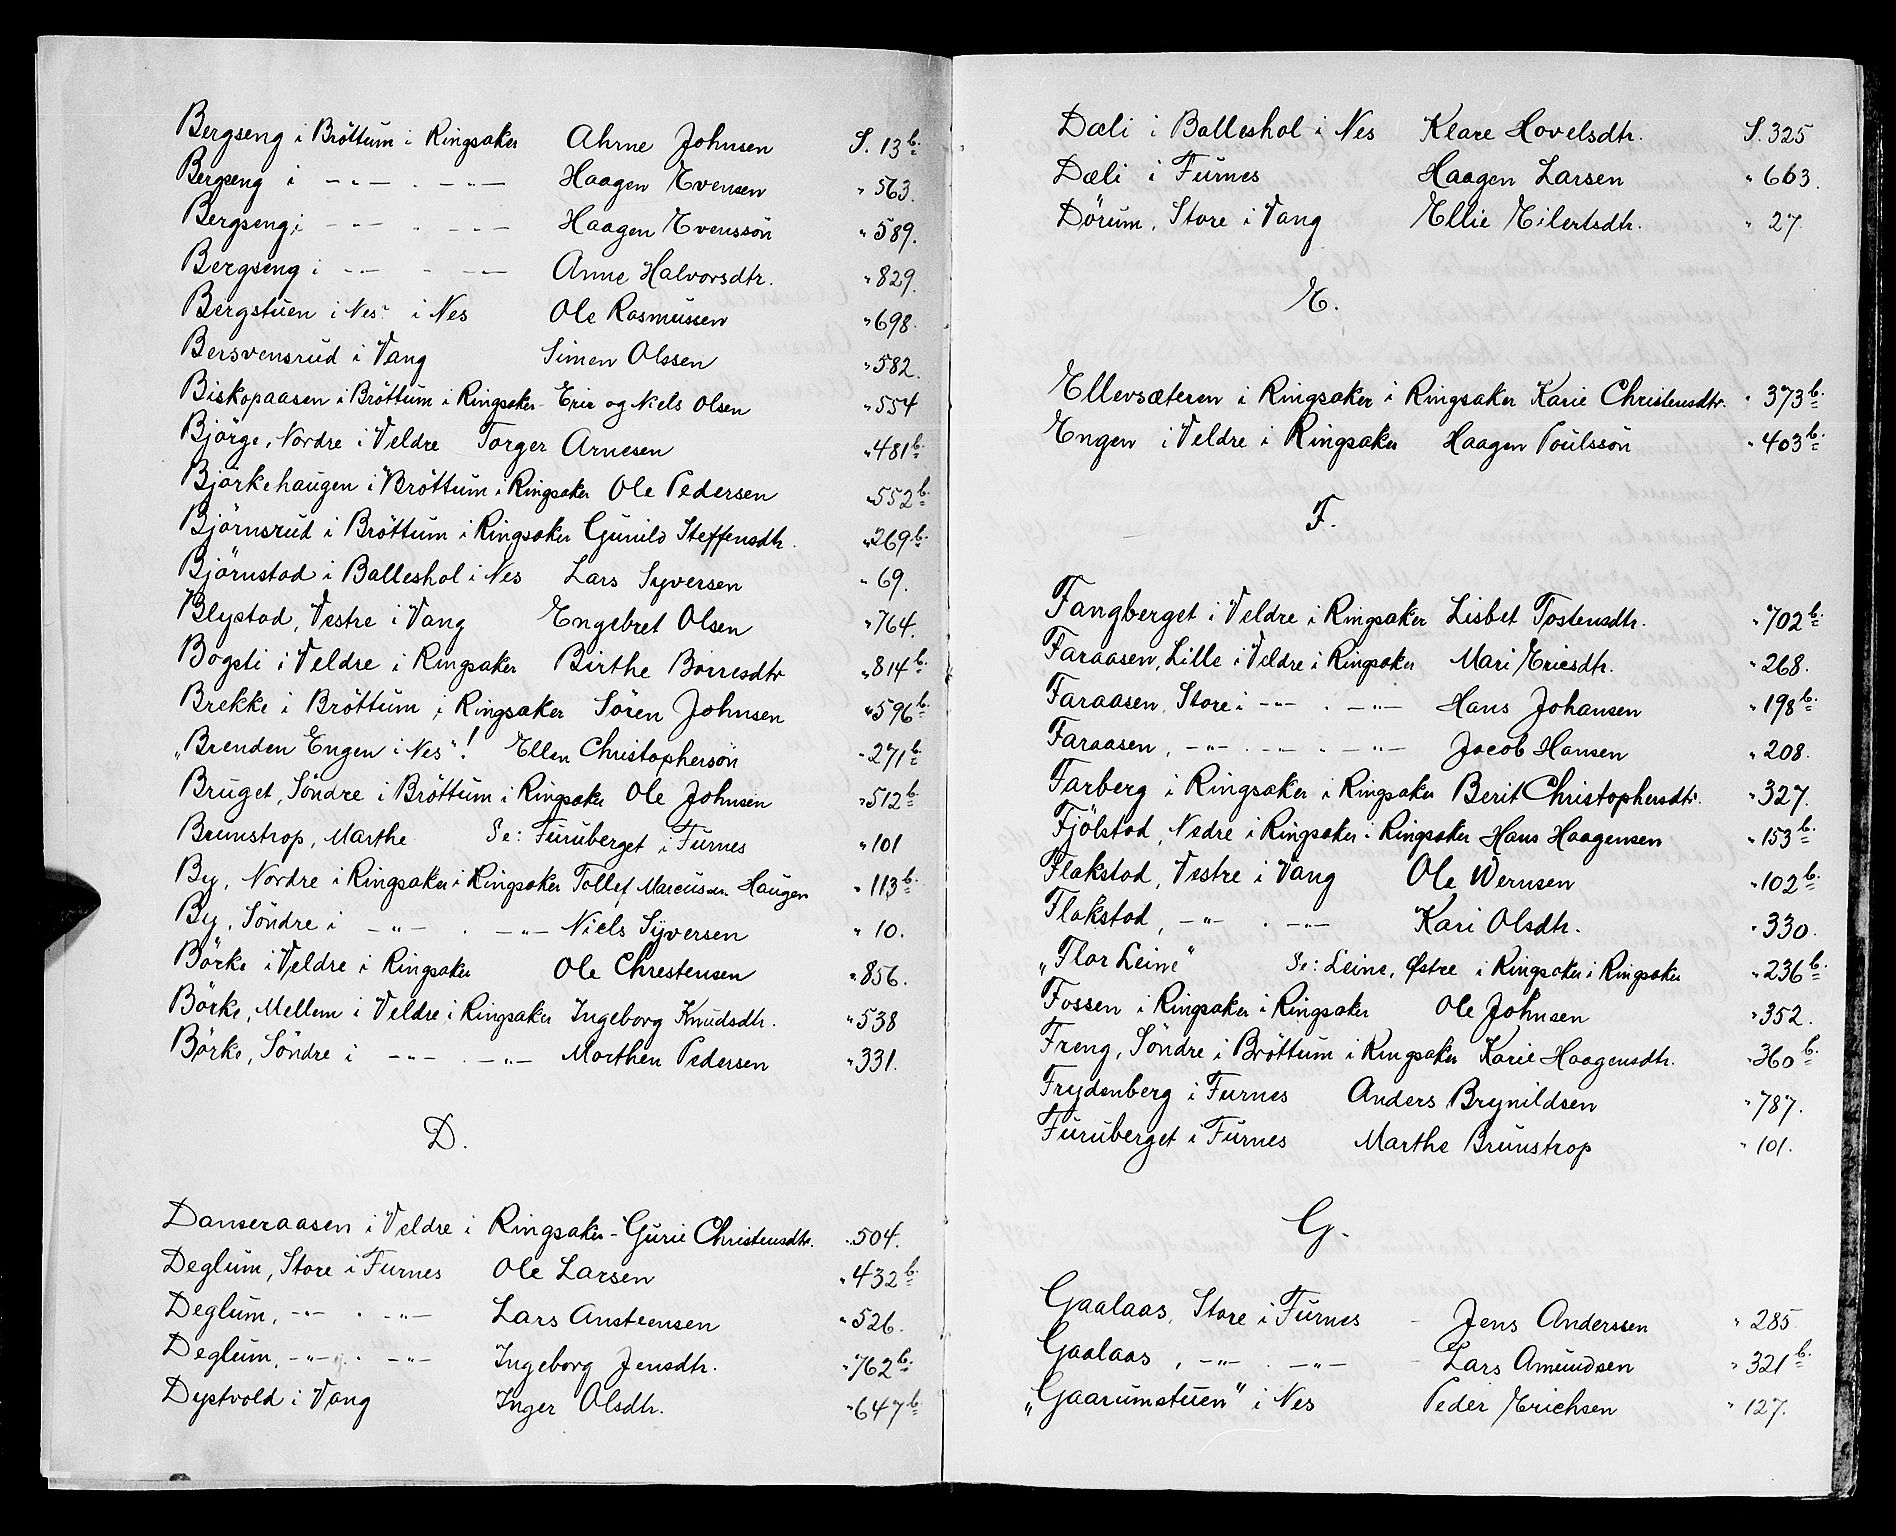 Bergseng i Bröttum i Ringsaker Ahrne Johnsen S. 13 b.
Bergseng i -"- . -"- Haagen Evensen " 563.
Bergseng i -"- . -"- Haagen Evenssön " 589.
Bergseng i -"- . -"- Anne Halvorsdtr. " 829.
Bergstuen i Nes i Nes Ole Rasmussen " 698.
Bersvensrud i Vang Simen Olssen " 582.
Biskopaasen i Bröttum i Ringsaker - Eric og Niels Olsen " 554
Björge, Nordre i Veldre Torger Arnesen " 481 b.
Björkehaugen i Bröttum i Ringsaker Ole Pedersen " 552 b.
Björnsrud i Bröttum i Ringsaker Gunild Steffensdtr. " 269 b.
Björnstad i Balleshol i Nes Lars Syversen " 69.
Blystad, Vestre i Vang Engebret Olsen " 764.
Bogsti i Veldre i Ringsaker Birthe Borresdtr " 814 b.
Brekke i Bröttum i Ringsaker Sören Johnsen " 596 b.
"Brenden Engen i Nes"! Ellen Christophersön " 271 b
Bruget, Söndre i Bröttum i Ringsaker Ole Johnsen " 512 b
Brunstrop, Marthe Se: Furuberget i Furnes " 101
By, Nordre i Ringsaker i Ringsaker Tollef Marcussen Haugen " 113 b.
By, Söndre i -"- . -"- Niels Syversen " 10.
Börke i Veldre i Ringsaker Ole Chrestensen " 856.
Börke, Mellem i Veldre i Ringsaker Ingeborg Knudsdtr. " 538
Börke, Söndre i -"- . -"- Morthen Pedersen " 331.
D.
Danseraasen i Veldre i Ringsaker - Gurie Christensdtr. " 504.
Deglum, Store i Furnes Ole Larsen " 432 b.
Deglum, -"- . -"- Lars Ansteensen " 526.
Deglum, -"- . -"- Ingeborg Jensdtr. " 762 b.
Dystvold i Vang Inger Olsdtr. " 647 b.
Dæli i Balleshol i Nes Klare Hovelsdtr. S. 325
Dæli i Furnes Haagen Larsen " 663.
Dörum, Store i Vang Ellie Eilertsdtr. " 27.
E.
Ellevsæteren i Ringsaker i Ringsaker Karie Christensdtr. " 373 b.
Engen i Veldre i Ringsaker Haagen Poulssön " 403 b.
F.
Fangberget i Veldre i Ringsaker Lisbet Tostensdtr. " 702 b.
Faraasen, Lille i Veldre i Ringsaker Mari Ericsdtr. " 268.
Faraasen, Store i -"- . -"- Hans Johansen " 198 b.
Faraasen, -"- . -"- " -"- Jacob Hansen " 208.
Farberg i Ringsaker i Ringsaker Berit Christophersdtr. " 327.
Fjölstad, Nedre i Ringsaker i Ringsaker Hans Haagensen " 153 b.
Flakstad, Vestre i Vang Ole Wernsen " 102 b.
Flakstad, -"- . -"- Kari Olsdtr. " 330.
"Flor Leine" Se: Leine, Østre i Ringsaker i Ringsaker " 236 b.
Fossen i Ringsaker i Ringsaker Ole Johnsen " 352.
Freng, Söndre i Bröttum i Ringsaker Karie Haagensdtr. " 360 b.
Frydenberg i Furnes Anders Brynildsen " 787.
Furuberget i Furnes Marthe Brunstrop " 101.
G.
Gaalaas, Store i Furnes - Jens Anderssen " 285.
Gaalaas, -"- . -"- - Lars Amundsen " 321 b.
"Gaarumstuen" i Nes Peder Erichsen " 127.